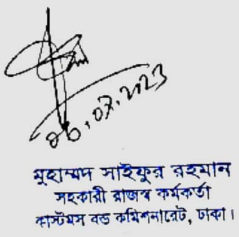 ০৬.০৭.২০২৩
মুহাম্মদ সাইফুর রহমান
সহকারী রাজস্ব কর্মকর্তা
কাস্টমস বন্ড কমিশনারেট, ঢাকা।